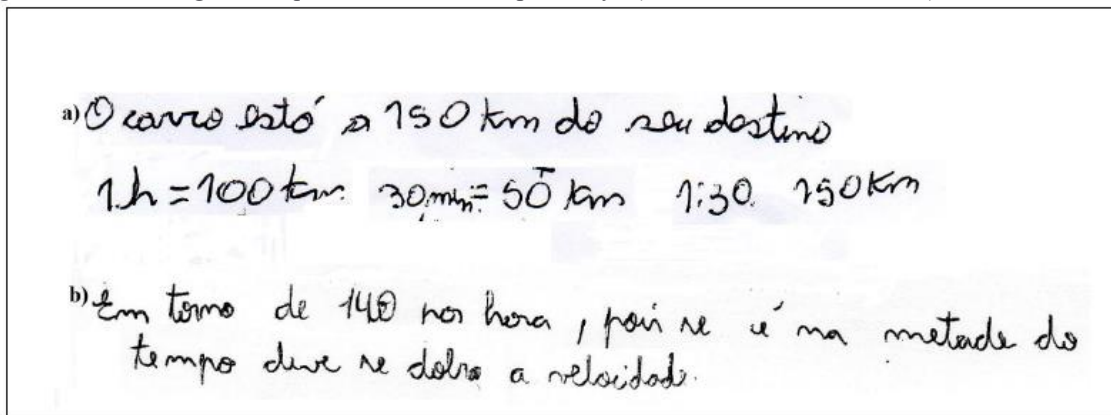 a) O carro está a 150 km do seu destino
1h = 100 km. 30 min = 50 km 1:30. 150 km
b) Em torno de 140 por hora, pois se é na metade do
tempo deve se dobra a velocidade.